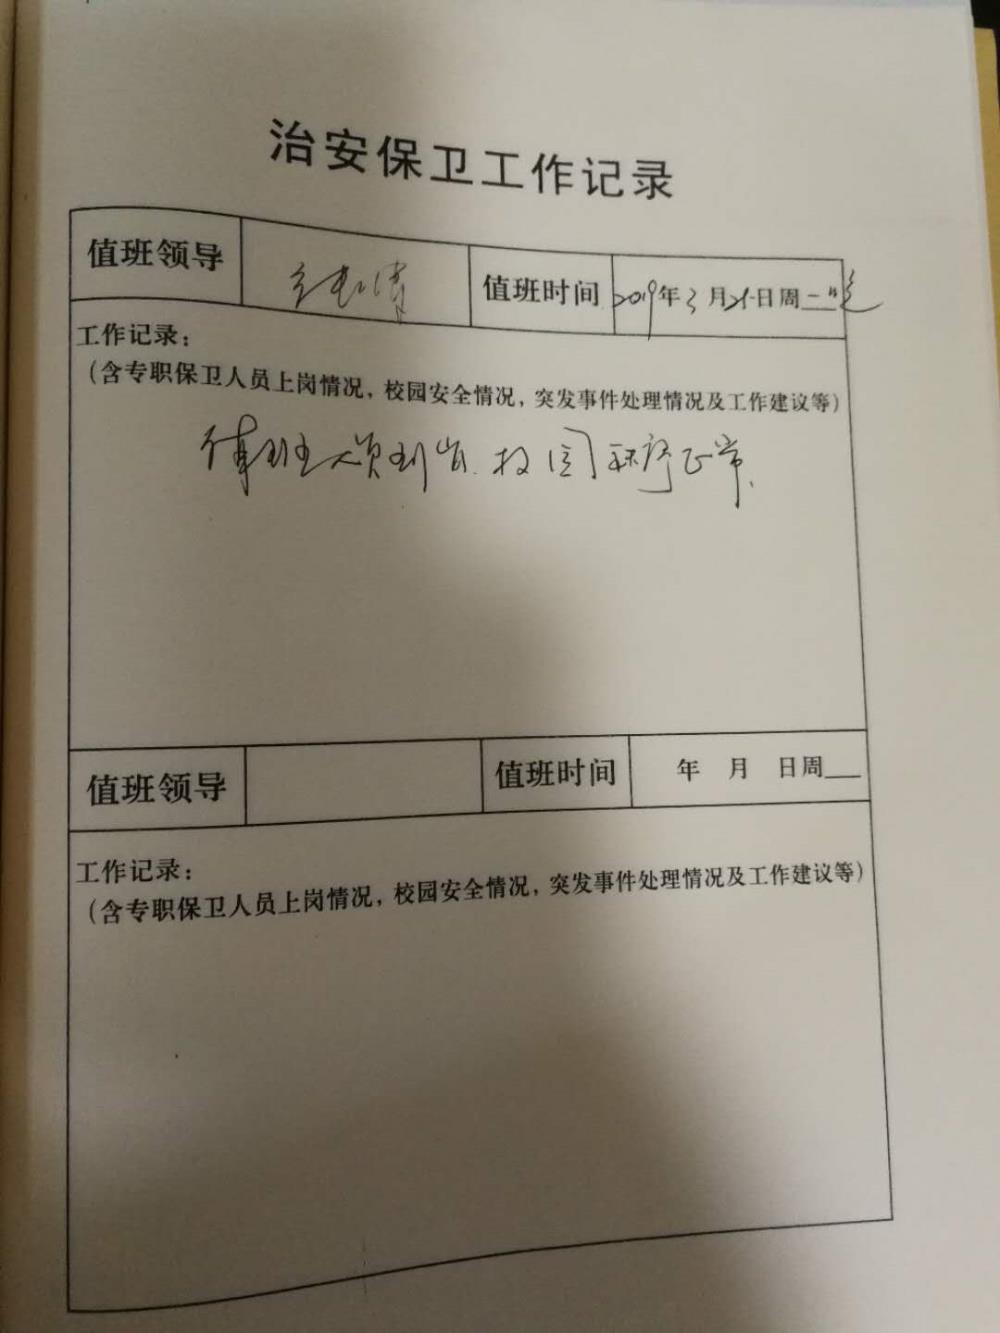 治安保卫工作记录
值班领导 值班时间 2019年3月25日周一晚
工作记录：
（含专职保卫人员上岗情况，校园安全情况，突发事件处理情况及工作建议等）
值班人员到岗.校园秩序正常.
值班领导 值班时间 年 月 日周
工作记录：
（含专职保卫人员上岗情况，校园安全情况，突发事件处理情况及工作建议等）